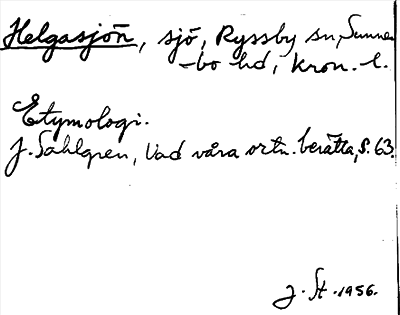 Helgasjön, sjö, Ryssby sn, Sunner-
-bo hd, Kron. l.
Etymologi.
J. Sahlgren, Vad våra ortn. berätta, S. 63.
J. St. 1956.